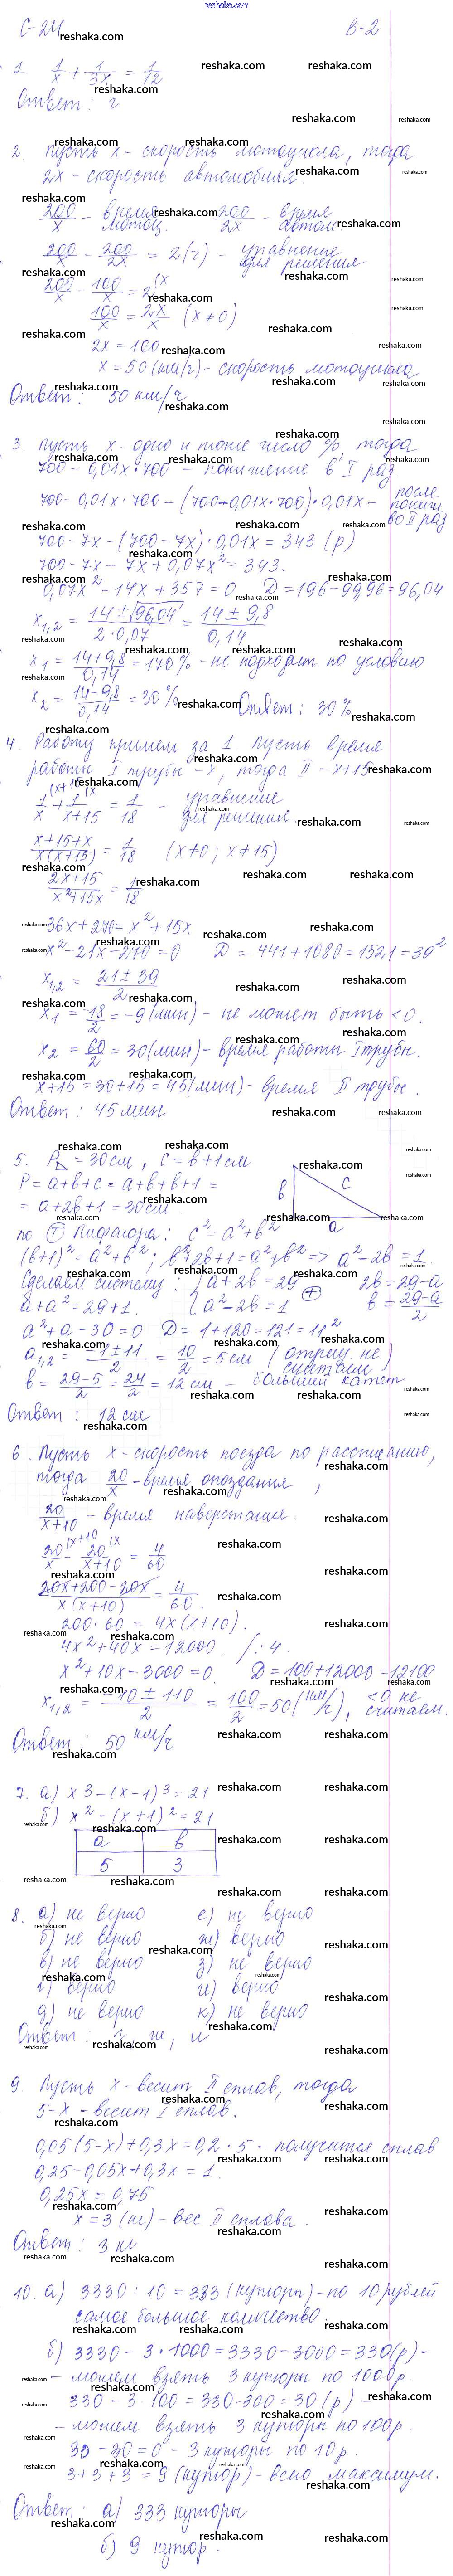 reshaka.com
С-24 В-2
1. 1/x + 1/3x = 1/12
Ответ: г
2. Пусть x - скорость мотоцикла, тогда
2x - скорость автомобиля.
200/x - время мотоц. 200/2x - время автом.
200/x - 200/2x = 2(ч) - уравнение для решения
200/x - 100/x = 2 (x
100/x = 2x/x (x≠0)
2x = 100
x = 50 (км/ч) - скорость мотоцикла
Ответ: 50 км/ч
3. Пусть x - одно и тоже число %, тогда
700 - 0,01x·700 - понижение в I раз.
700 - 0,01x·700 - (700-0,01x·700)·0,01x - после пониж. во II раз
700 - 7x - (700-7x)·0,01x = 343 (р)
700 - 7x - 7x + 0,07x² = 343.
0,07x² - 14x + 357 = 0 D = 196 - 99,96 = 96,04
x1,2 = (14 ± √96,04)/(2·0,07) = (14 ± 9,8)/0,14
x1 = (14+9,8)/0,14 = 170% - не подходит по условию
x2 = (14-9,8)/0,14 = 30% Ответ: 30%
4. Работу примем за 1. Пусть время
работы I трубы - x, тогда II - x+15
1/x + 1/(x+15) = 1/18 - уравнение для решения.
(x+15+x)/(x(x+15)) = 1/18 (x≠0; x≠15)
(2x+15)/(x²+15x) = 1/18
36x + 270 = x² + 15x
x² - 21x - 270 = 0 D = 441 + 1080 = 1521 = 39²
x1,2 = (21 ± 39)/2
x1 = -18/2 = -9 (мин) - не может быть <0.
x2 = 60/2 = 30 (мин) - время работы I трубы.
x+15 = 30+15 = 45 (мин) - время II трубы.
Ответ: 45 мин
5. P = 30 см, c = b+1 см
P = a+b+c = a+b+b+1 =
= a+2b+1 = 30 см.
b c a
по Т Пифагора: c² = a² + b²
(b+1)² = a²+b². b²+2b+1 = a²+b² => a²-2b = 1.
Сделаем систему: { a+2b = 29 a²-2b = 1 + 2b = 29-a b = (29-a)/2
a + a² = 29+1.
a² + a - 30 = 0 D = 1+120 = 121 = 11²
a1,2 = (-1±11)/2 = 10/2 = 5 см (отриц. не считаем)
b = (29-5)/2 = 24/2 = 12 см - больший катет
Ответ: 12 см
6. Пусть x - скорость поезда по расписанию,
тогда 20/x - время опоздания,
20/(x+10) - время наверстания.
20/x (x+10 - 20/(x+10) (x = 4/60
(20x+200-20x)/(x(x+10)) = 4/60.
200·60 = 4x(x+10).
4x² + 40x = 12000. /:4.
x² + 10x - 3000 = 0. D = 100+12000 = 12100
x1,2 = (-10 ± 110)/2 = 100/2 = 50 (км/ч), <0 не считаем.
Ответ: 50 км/ч
7. а) x³ - (x-1)³ = 21
б) x² - (x+1)² = 21
а в
5 3
8. а) не верно е) не верно
б) не верно ж) верно
в) не верно з) не верно
г) верно и) верно
д) не верно к) не верно
Ответ: г, ж, и
9. Пусть x - весит II сплав, тогда
5-x - весит I сплав.
0,05(5-x)+0,3x = 0,2·5 - получится сплав
0,25-0,05x+0,3x = 1.
0,25x = 0,75
x = 3 (кг) - вес II сплава.
Ответ: 3 кг
10. а) 3330 : 10 = 333 (купюры) - по 10 рублей
самое большое количество.
б) 3330 - 3·1000 = 3330-3000 = 330(р) -
- можем взять 3 купюры по 1000р.
330 - 3·100 = 330-300 = 30 (р) -
- можем взять 3 купюры по 100р.
30 - 30 = 0 - 3 купюры по 10р.
3+3+3 = 9 (купюр) - всего максимум.
Ответ: а) 333 купюры
б) 9 купюр.